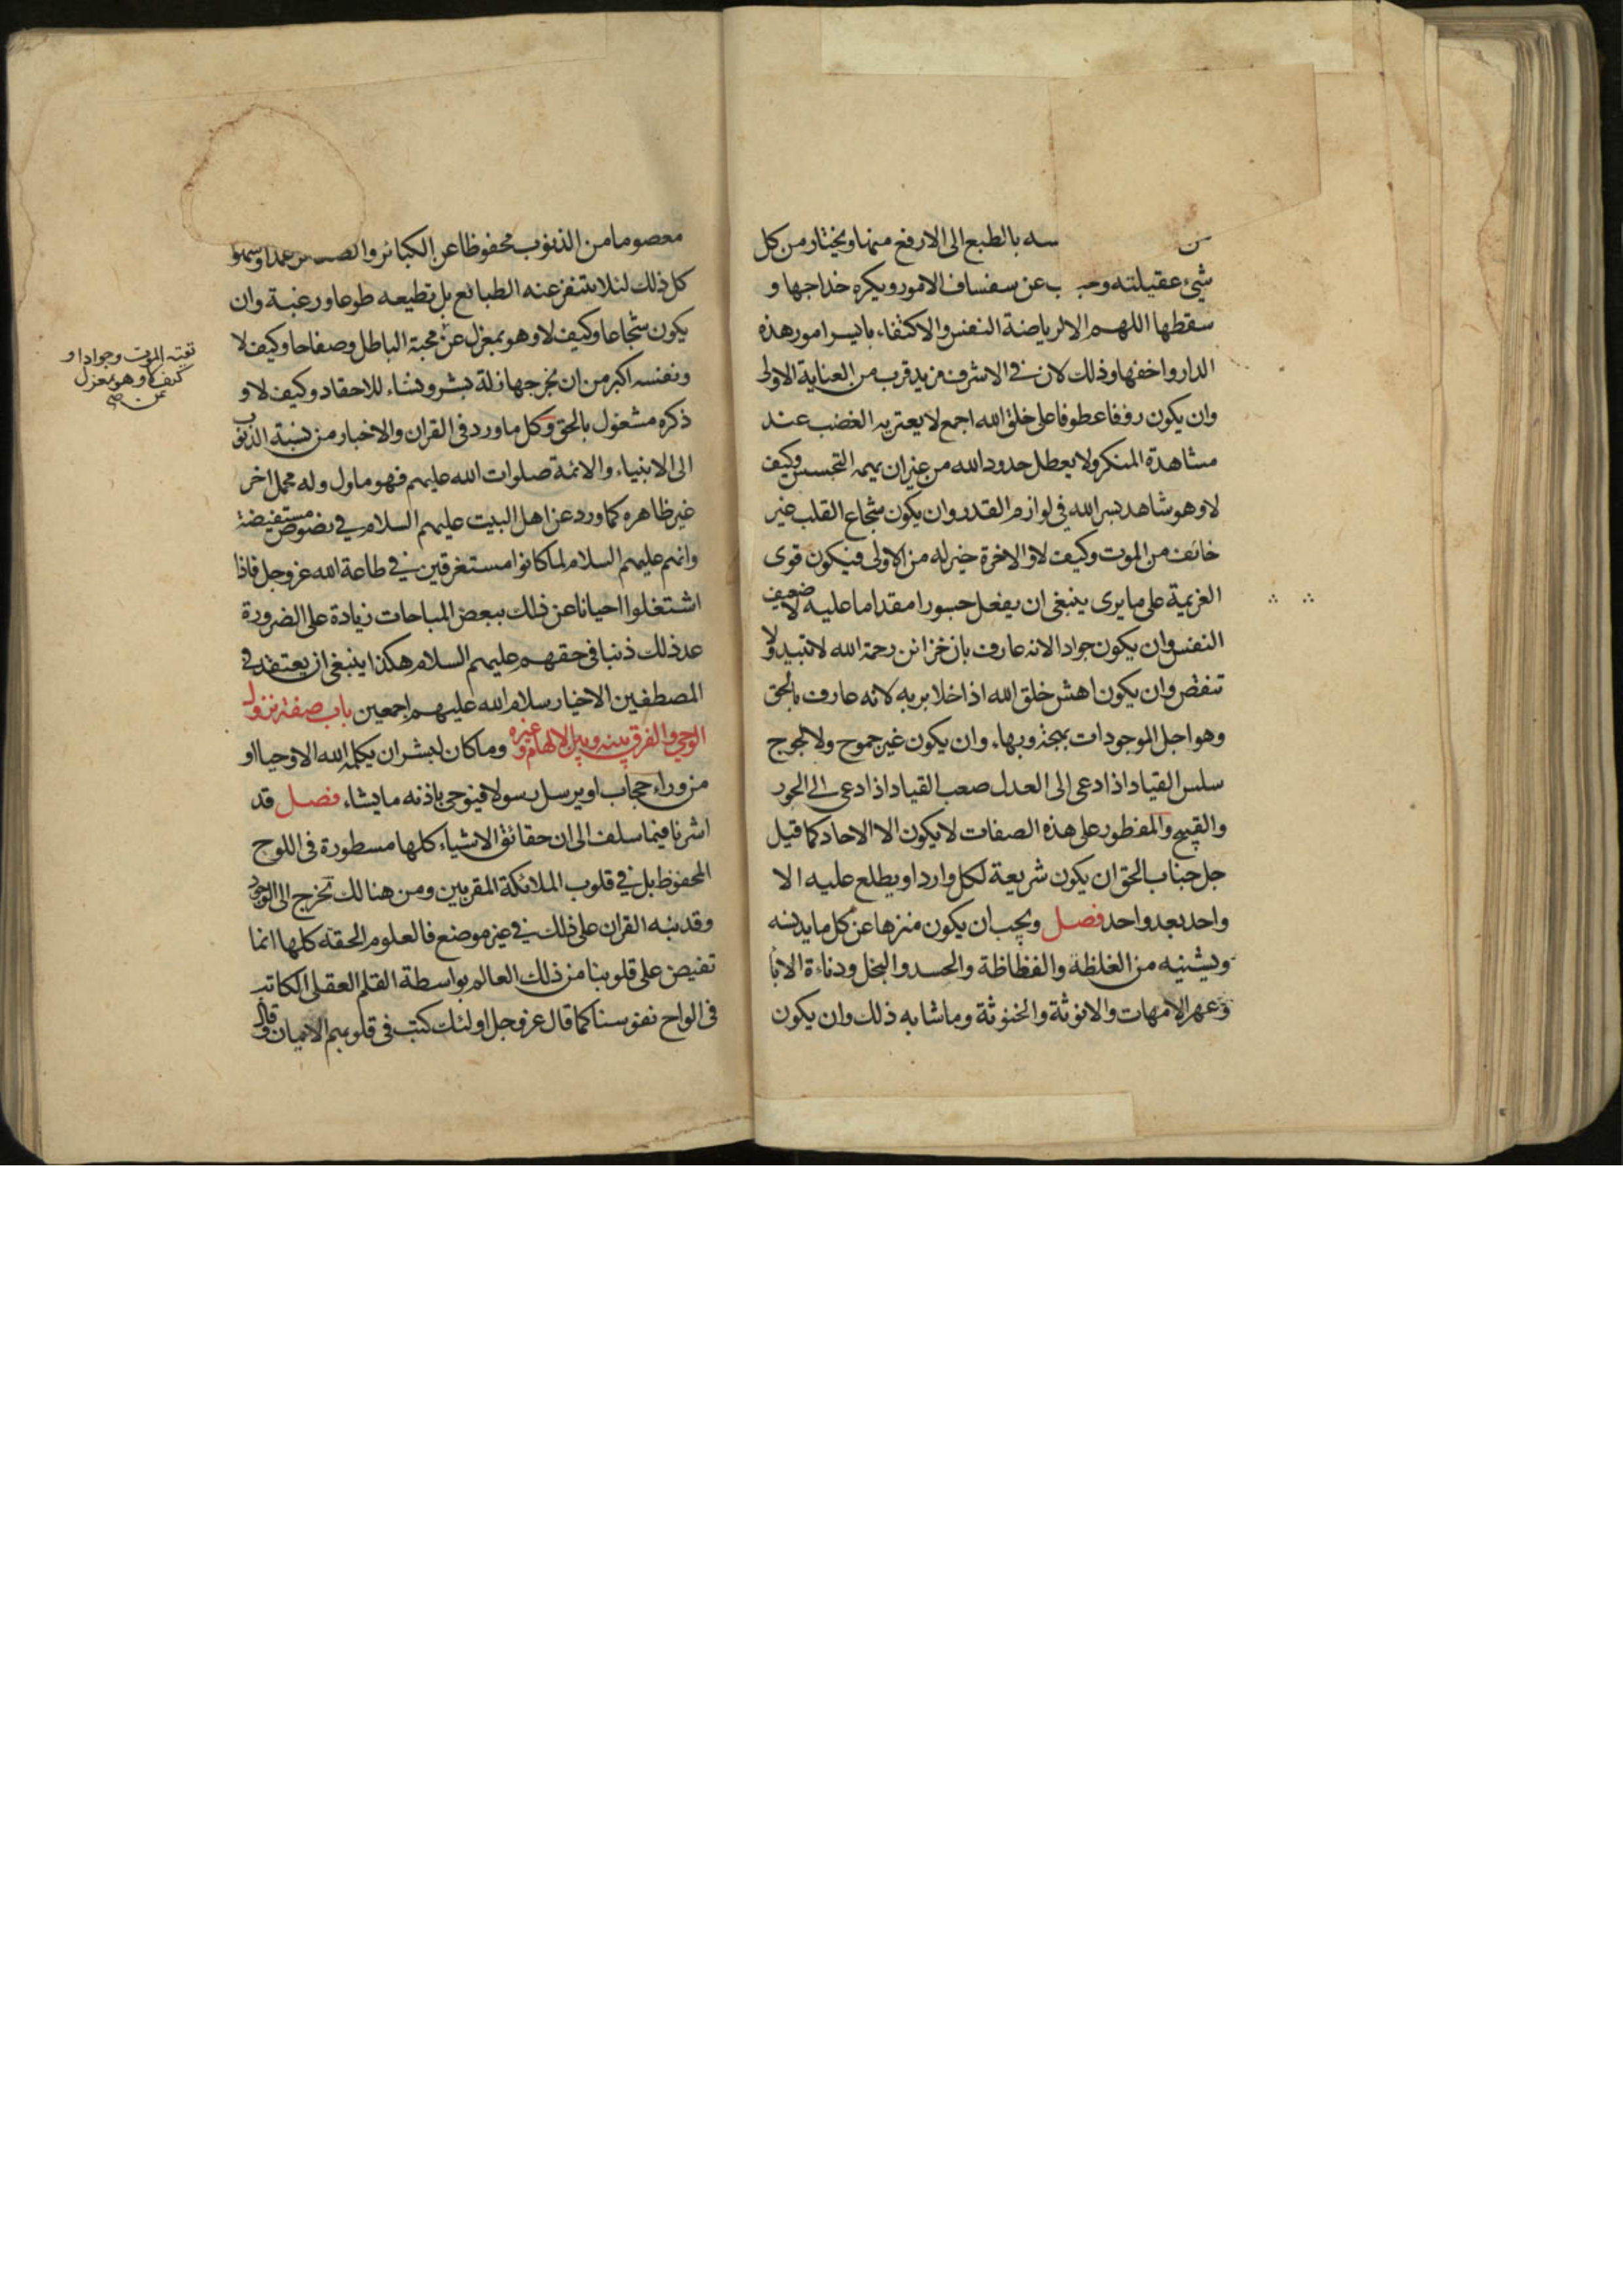 سه بالطبع الى الارفع منها ويختار من كل
شئ عقيلته وحـ ب عن سفساف الامور ويكره خداجها و
سقطها اللهم الا لرياضة النفس والاكتفاء بايسر امور هذه
الدار واخفها وذلك لان في الاشرف مزيد قرب من العناية الاولى
وان يكون رؤفا عطوفا على خلق الله اجمع لا يعتريه الغضب عند
مشاهدة المنكر ولا يعطل حدود الله من غير ان يهمه التجسس وكيف
لا وهو شاهد بسر الله في لوازم القدر وان يكون شجاع القلب غير
خائف من الموت وكيف لا والاخرة خير له من الاولى فيكون قوى
العزيمة على ما يرى ينبغي ان يفعل جسورا مقداما عليه لا ضعيف
النفس وان يكون جوادا لانه عارف بان خزائن رحمة الله لا تبيد ولا
تنقص وان يكون اهش خلق الله اذا خلا بربه لانه عارف بالحق
وهو اجل الموجودات بهجة وبهاء وان يكون غير جموح ولا لجوج
سلس القياد اذا دعى الى العدل صعب القياد اذا دعى الى الجور
والقبيح والمفطور على هذه الصفات لا يكون الا الاحاد كما قيل
جل جناب الحق ان يكون شريعة لكل وارد او يطلع عليه الا
واحد بعد واحد فصل ويجب ان يكون منزها عن كل ما يدنسه
ويشينه من الغلظة والفظاظة والحسد والبخل ودناءة الابا
وعهر الامهات والانوثة والخنوثة وما شابه ذلك وان يكون
معصوما من الذنوب محفوظا عن الكبائر والصـ عمدا وسهوا
كل ذلك لئلا يتنفر عنه الطبائع بل تطيعه طوعا ورغبة وان
يكون شجاعا وكيف لا وهو بمعزل عن محبة الباطل وصفاحا وكيف لا
ونفسه اكبر من ان تخرجها زلة بشر ونساء للاحقاد وكيف لا و
ذكره مشغول بالحق وكل ما ورد في القران والاخبار من نسبة الذنوب
الى الانبياء والائمة صلوات الله عليهم فهو ماول وله محمل اخر
غير ظاهره كما ورد عن اهل البيت عليهم السلام في نصوص مستفيضة
وانهم عليهم السلام لما كانوا مستغرقين في طاعة الله عز وجل فاذا
اشتغلوا احيانا عن ذلك ببعض المباحات زيادة على الضرورة
عد ذلك ذنبا في حقهم عليهم السلام هكذا ينبغي ان يعتقد في
المصطفين الاخيار سلام الله عليهم اجمعين باب صفة نزول
الوحي والفرق بينه وبين الالهام وغيره وما كان لبشر ان يكلمه الله الا وحيا او
من وراء حجاب او يرسل رسولا فيوحى باذنه ما يشاء فصل قد
اشرنا فيما سلف الى ان حقائق الاشياء كلها مسطورة في اللوح
المحفوظ بل في قلوب الملائكة المقربين ومن هنالك تخرج الى الوجود
وقد نبه القران على ذلك في غير موضع فالعلوم الحقة كلها انما
تفيض على قلوبنا من ذلك العالم بواسطة القلم العقلى الكاتب
في الواح نفوسنا كما قال عز وجل اولئك كتب في قلوبهم الايمان وقال
تقيته الموت وجوادا و
كيف لا وهو بمعزل
عن صح